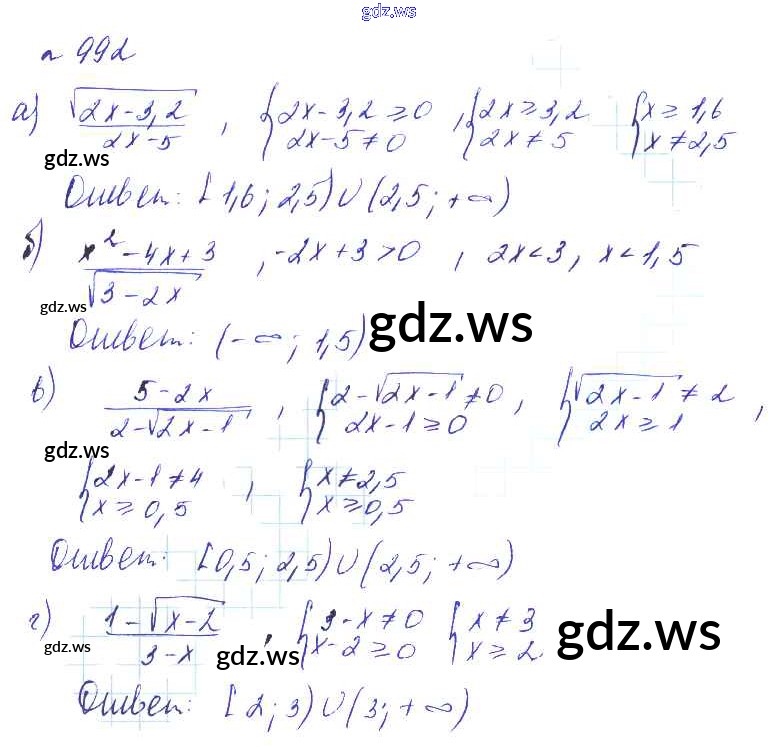 gdz.ws
n 992
а) √(2x-3,2)/(2x-5) , {2x-3,2 ≥ 0 2x-5 ≠ 0 , {2x ≥ 3,2 2x ≠ 5 {x ≥ 1,6 x ≠ 2,5
gdz.ws
Ответ: [1,6; 2,5) ∪ (2,5; +∞)
б) (x²-4x+3)/√(3-2x) , -2x+3>0 , 2x<3, x<1,5
gdz.ws
gdz.ws
Ответ: (-∞; 1,5)
в) (5-2x)/(2-√(2x-1)) , {2-√(2x-1) ≠ 0 2x-1 ≥ 0 , {√(2x-1) ≠ 2 2x ≥ 1 ,
gdz.ws
{2x-1 ≠ 4 x ≥ 0,5 , {x ≠ 2,5 x ≥ 0,5
Ответ: [0,5; 2,5) ∪ (2,5; +∞)
г) (1-√(x-2))/(3-x) , {3-x ≠ 0 x-2 ≥ 0 {x ≠ 3 x ≥ 2
gdz.ws
gdz.ws
gdz.ws
Ответ: [2; 3) ∪ (3; +∞)